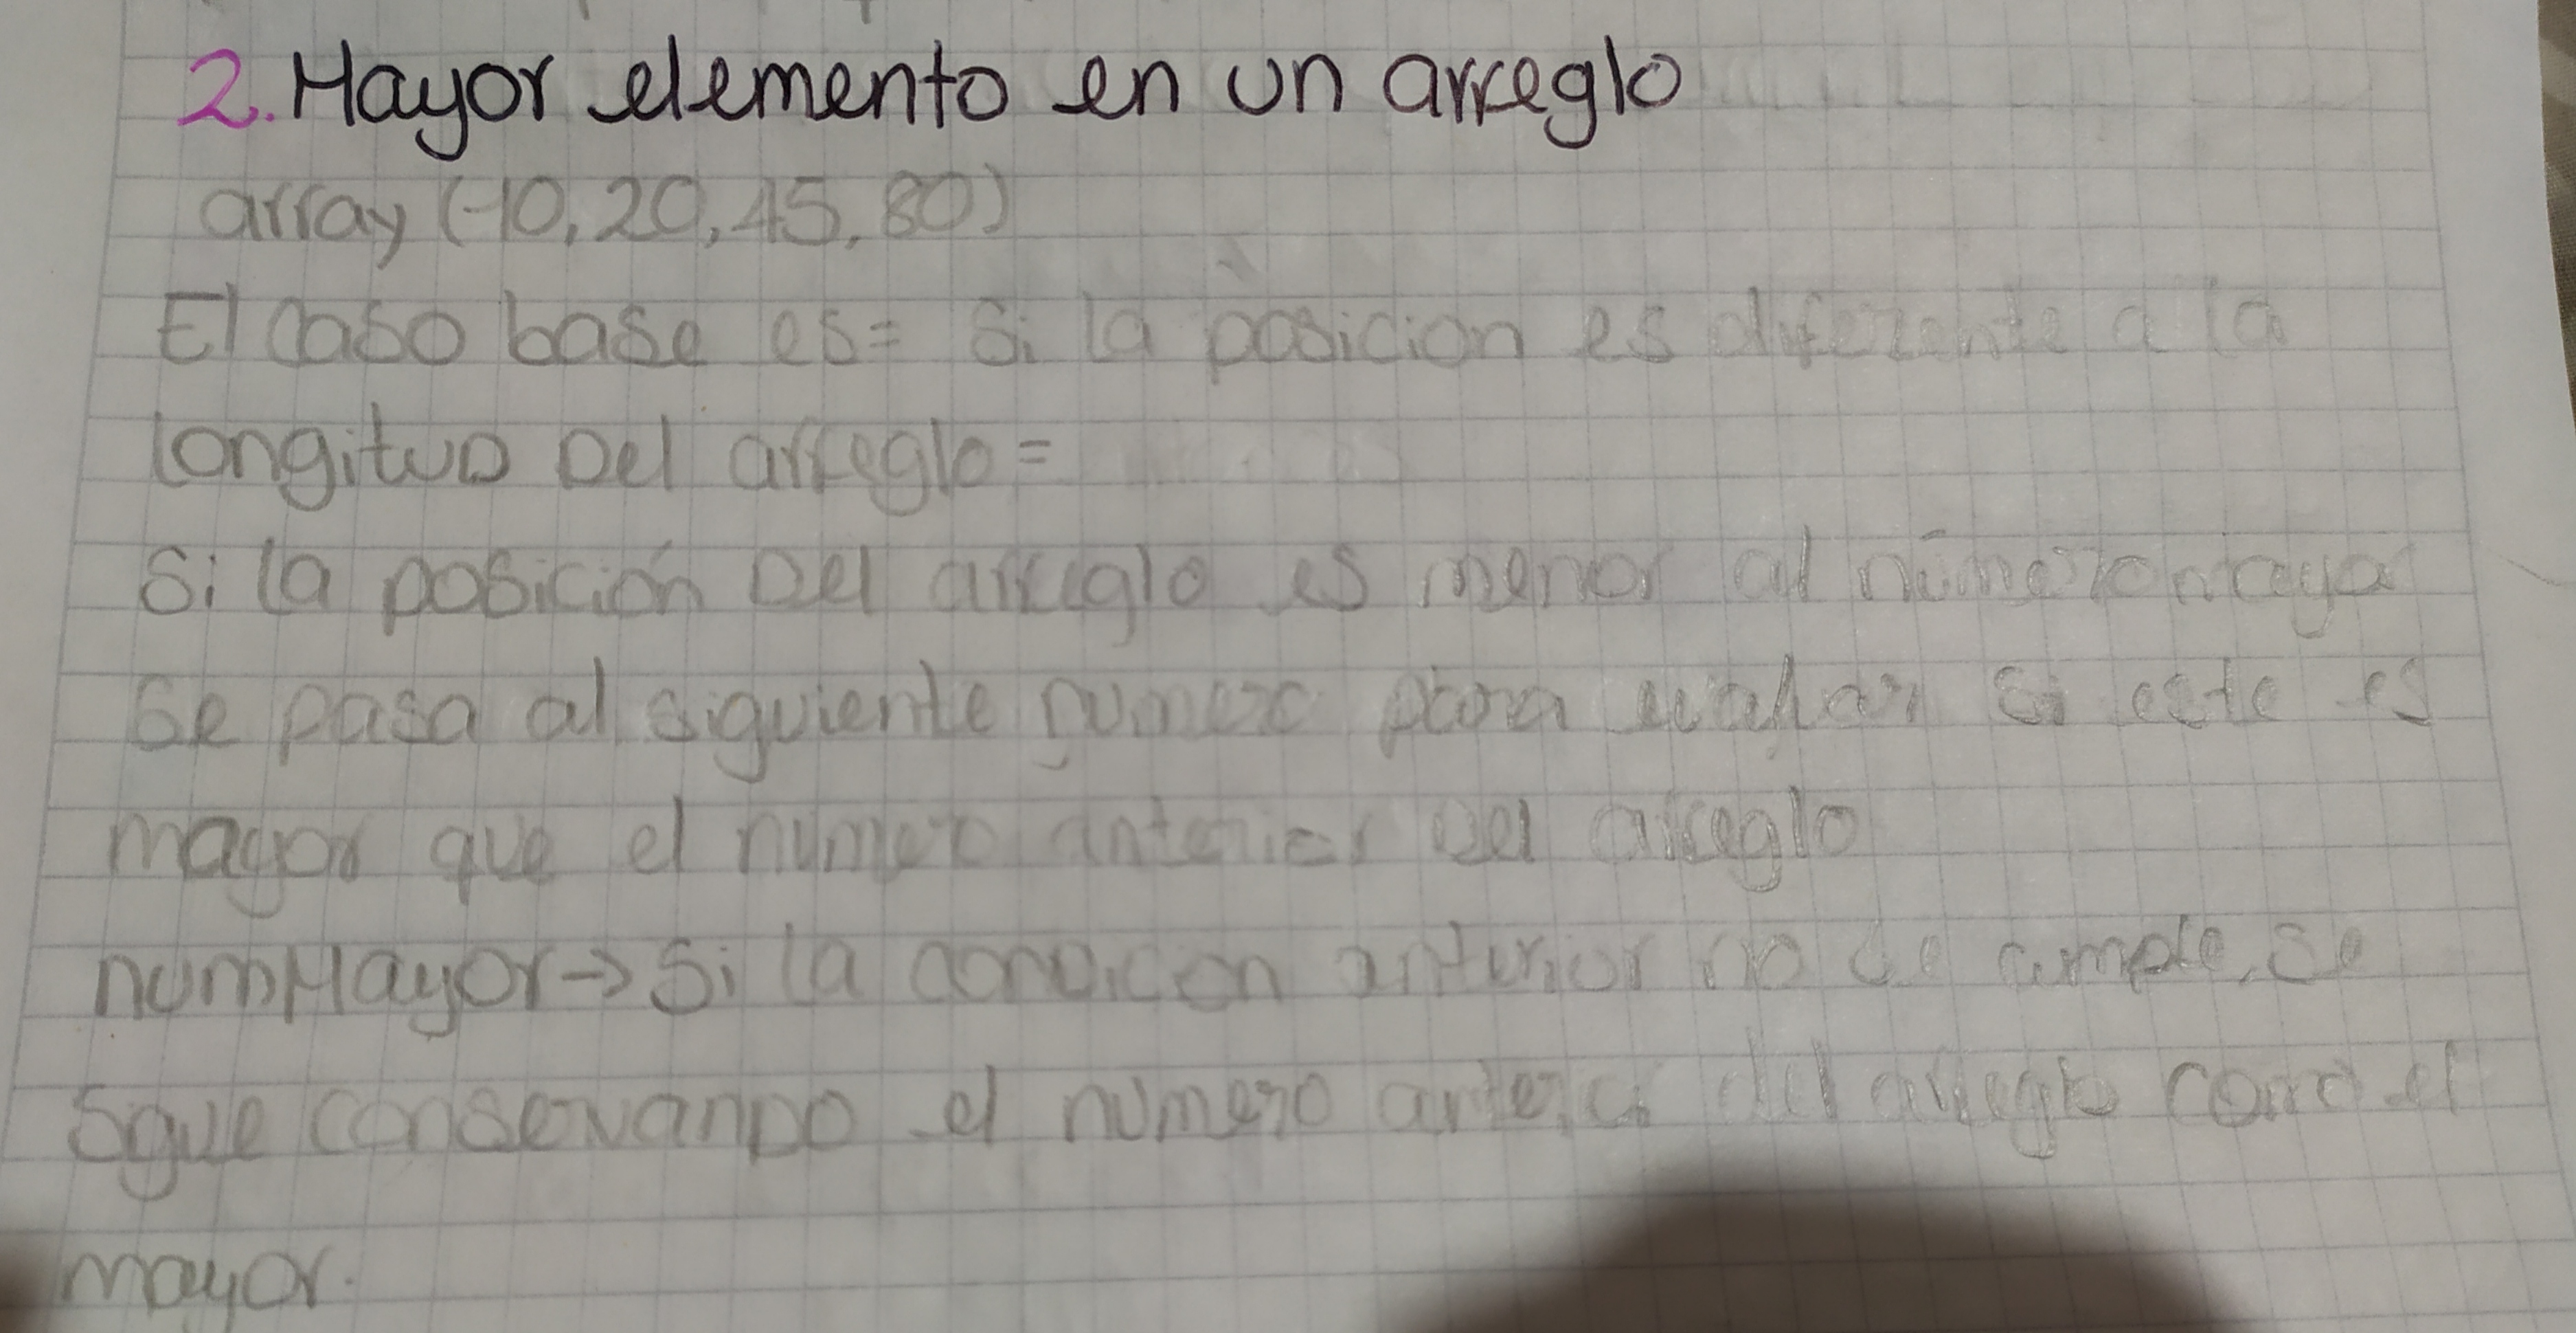 2. Mayor elemento en un arreglo
array (-10, 20, 45, 80)
El caso base es= Si la posicion es diferente a la
longitud Del arreglo=
Si la posición Del arreglo es menor al número mayor
Se pasa al siguiente numero para evaluar si este es
mayor que el número anterior Del arreglo
numMayor→ Si la condicion anterior no se cumple, se
Sigue conservando el número anterior del arreglo como el
mayor.